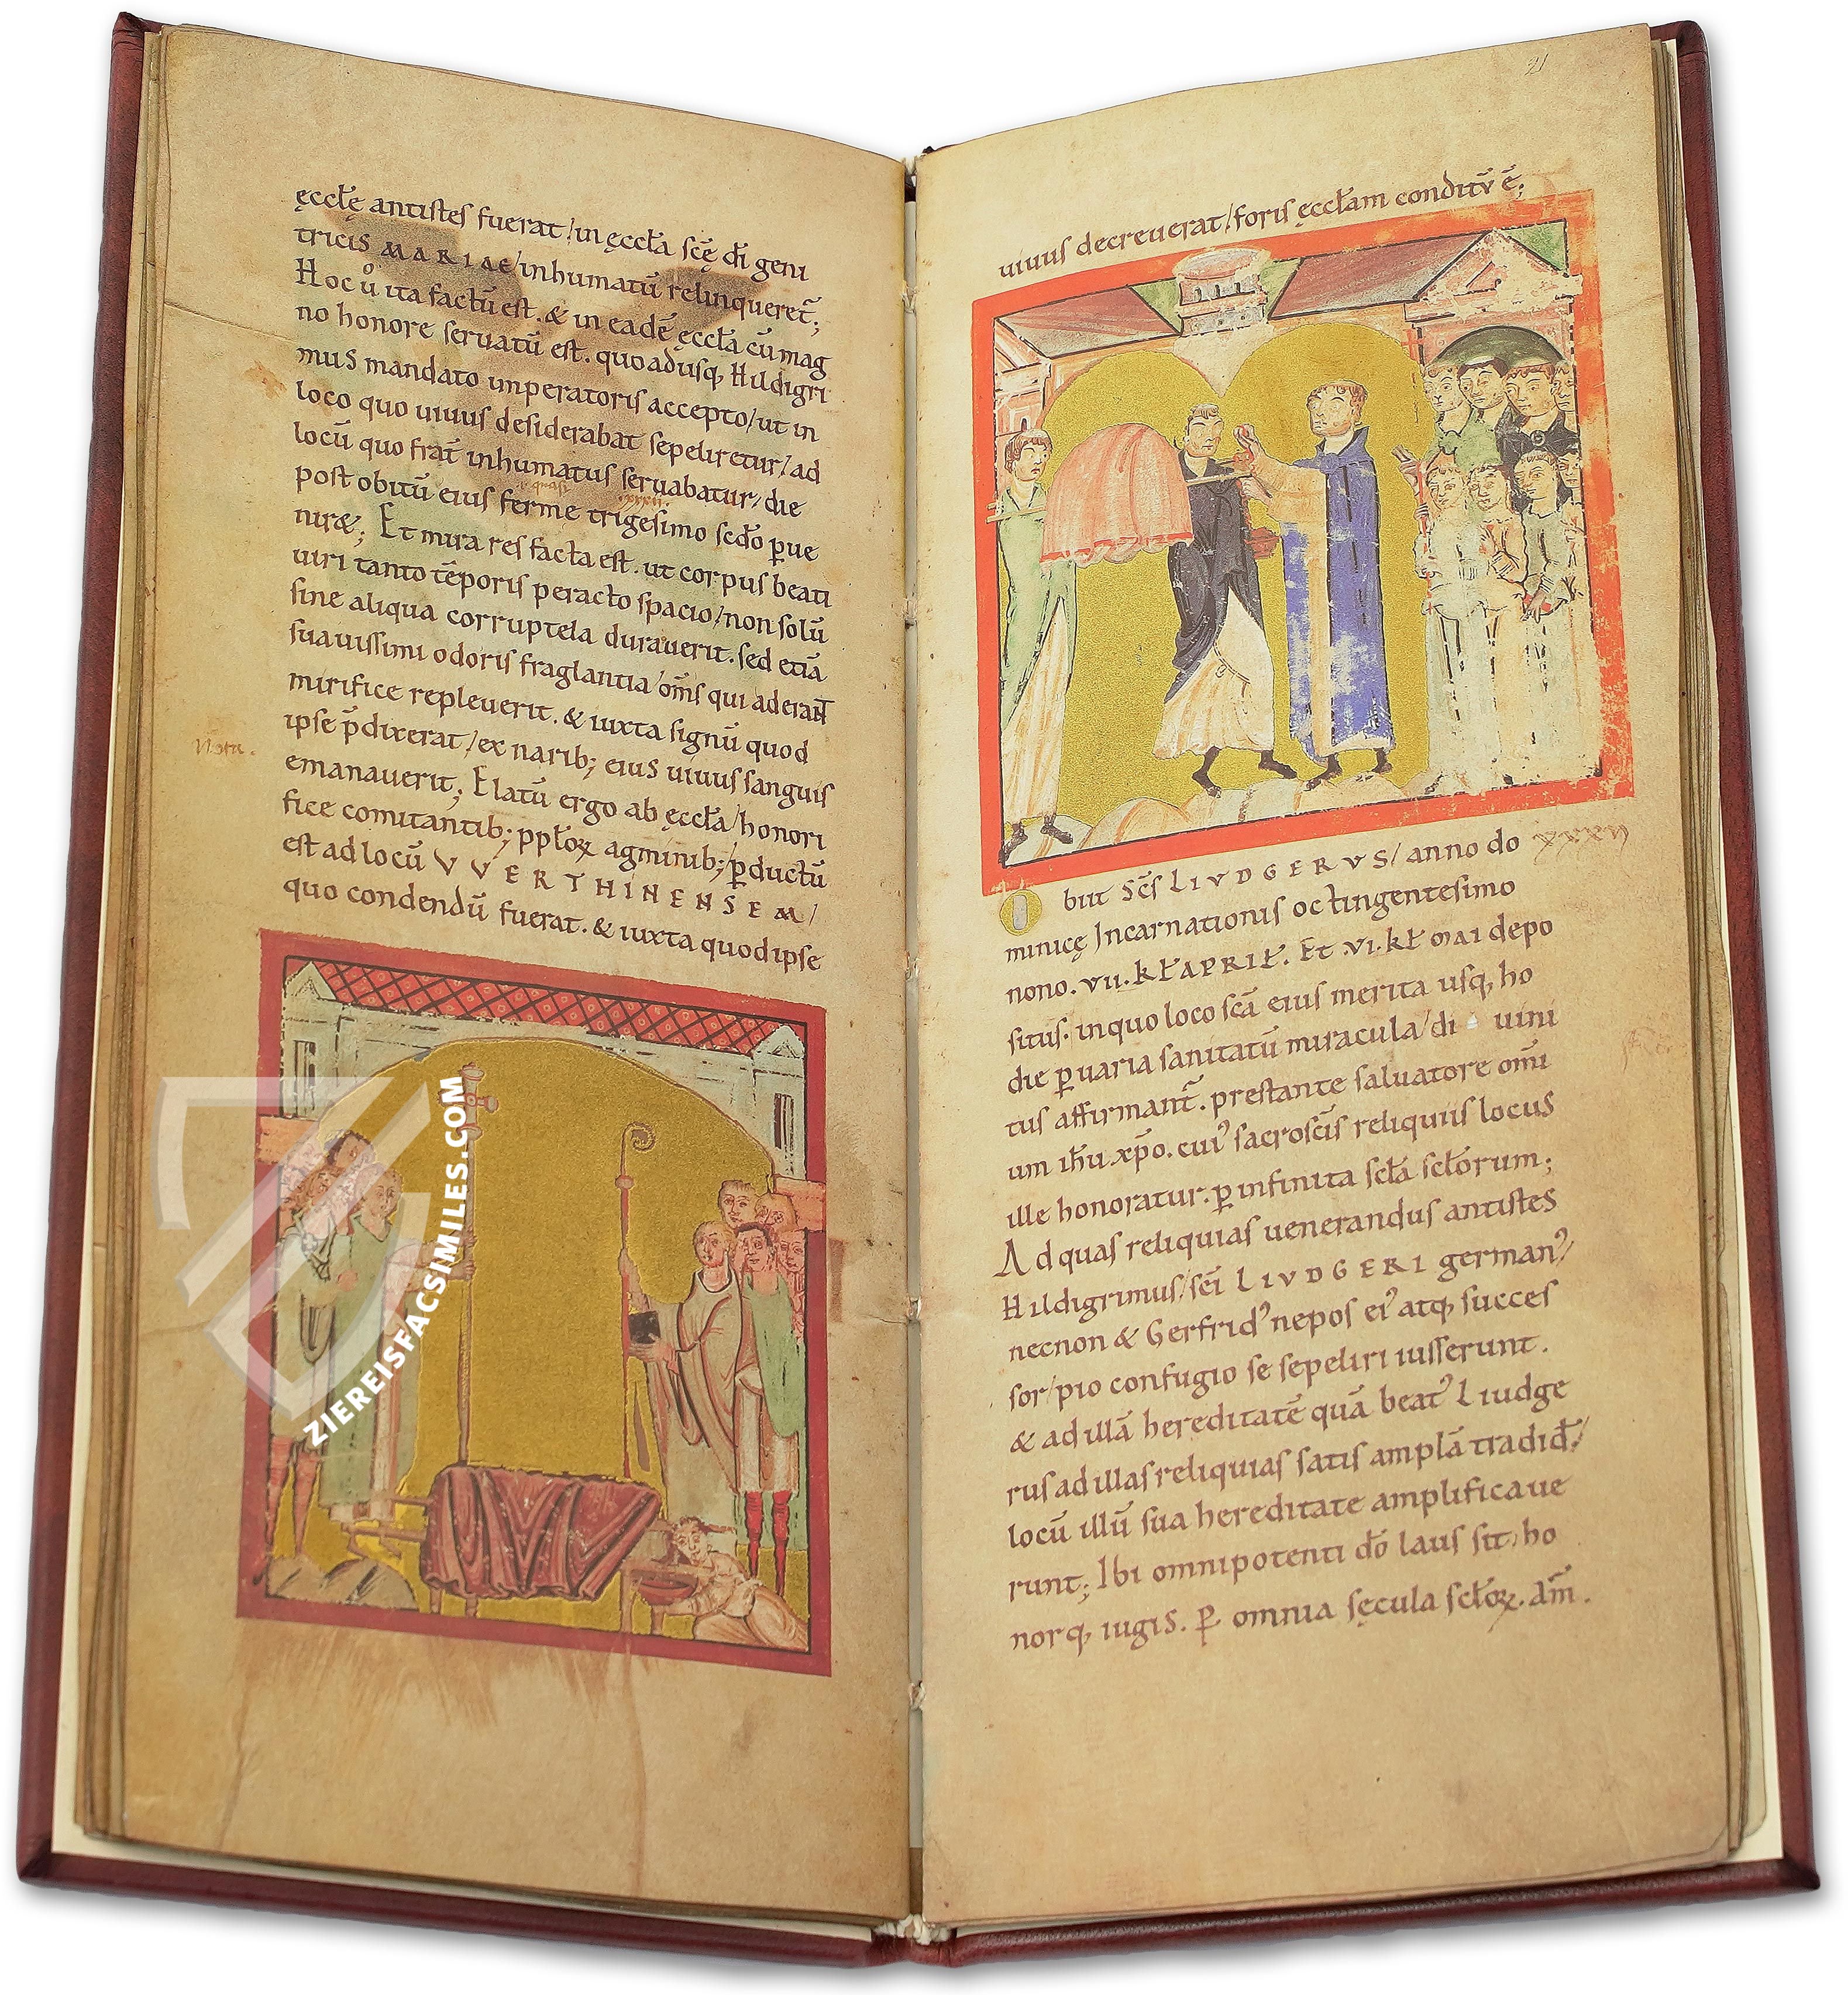 ęccłę antistes fuerat / in ęccła scę di geni
tricis MARIAE / inhumatū relinqueret̄;
Hoc ů ita factū est. & in eadē ęccła cū mag
no honore seruatū est. quoadusq, Hildigri
mus mandato imperatoris accepto / ut in
loco quo uiuus desiderabat sepeliretur / ad
locū quo frat̄ inhumatus seruabatur / die
quasi xxxii
post obitū eius ferme trigesimo scdo p̱ue
niræ; Et mira res facta est. ut corpus beati
uiri tanto tēporis peracto spacio / non solū
sine aliqua corruptela durauerit. sed etiā
suauissimi odoris fraglantia / om̄s qui aderant̄
mirifice repleuerit. & iuxta signū quod
Nota.
ipse p̄dixerat / ex narib; eius uiuus sanguis
emanauerit; Elatū ergo ab ęccła / honori
fice comitantib; ppłoꝝ agminib; / ꝑductū
est ad locū VVERTHINENSEM /
quo condendū fuerat. & iuxta quod ipse
ZIEREISFACSIMILES.COM
21
uiuus decreuerat / foris ęccłam conditū ē;
Obiit Scs̄ LIVDGERVS / anno do
xxxii
minicę Incarnationis octingentesimo
nono. VII. kł APRIŁ. Et .VI. kł MAI depo
situs. in quo loco scā eius merita usq, ho
die ꝑ uaria sanitatū miracula / di uini
tus affirmant̄. prestante saluatore omī
um ihu xp̄o. cui' sacroscīs reliquiis locus
ille honoratur. ꝑ infinita scła scłorum;
Ad quas reliquias uenerandus antistes
Hildigrimus / scī LIVDGERI german' /
necnon & Gerfrid' nepos ei' atq, succes
sor / pio confugio se sepeliri iusserunt.
& ad illā hereditatē quā beat' Liudge
rus ad illas reliquias satis amplā tradid̄ /
locū illū sua hereditate amplificaue
runt; Ibi omnipotenti dō laus sit / ho
norq, iugis. ꝑ omnia sęcula scłoꝝ. Am̄.